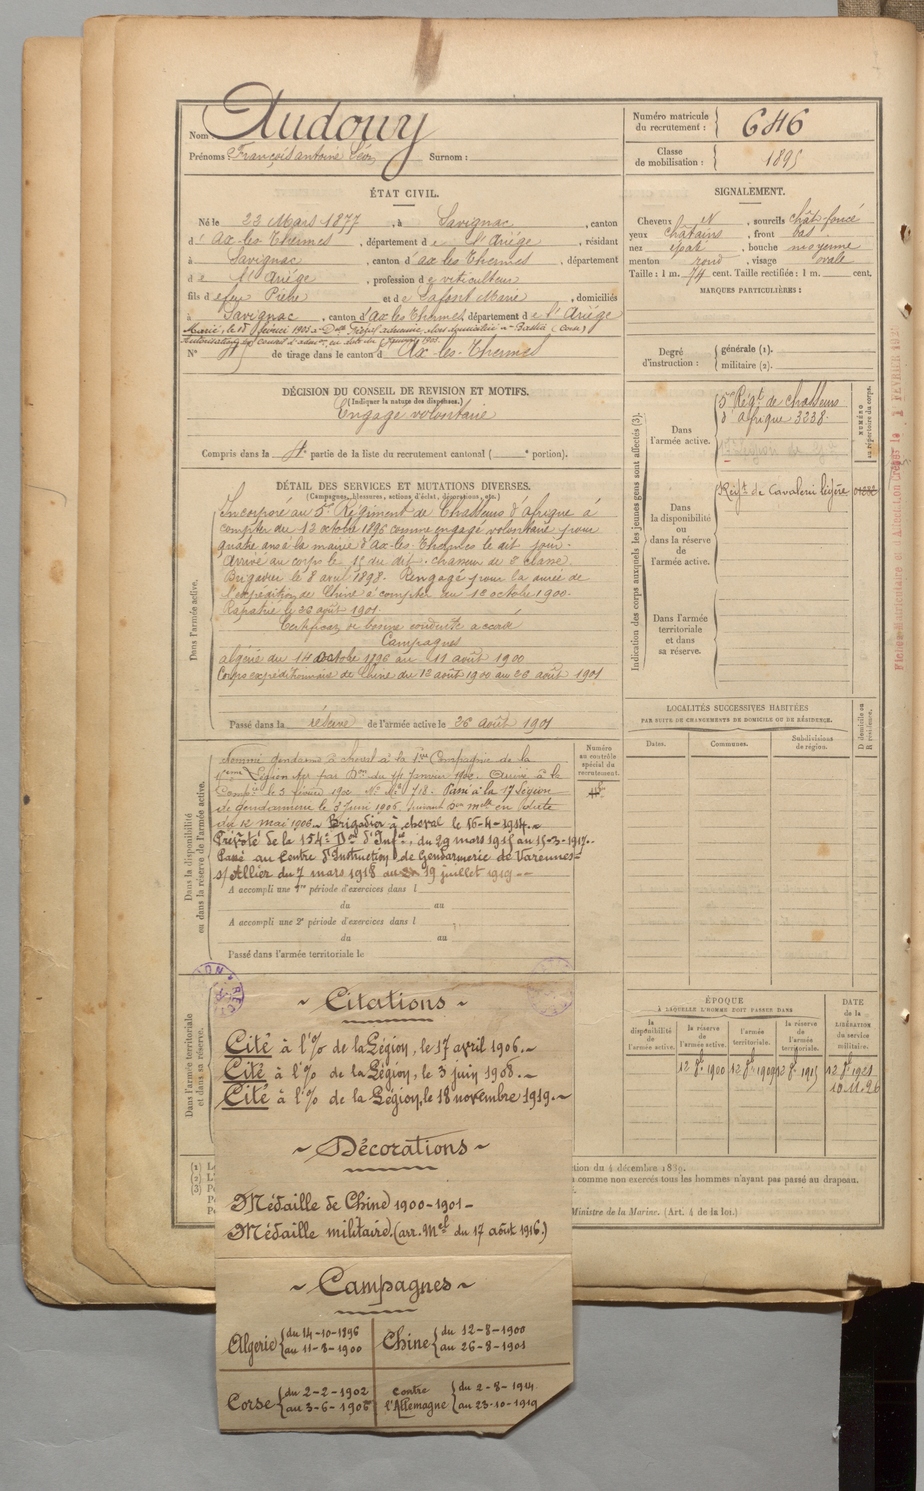 Nom Audouy
Prénoms François antoine Léon Surnom :
Numéro matricule du recrutement : 646
Classe de mobilisation : 1895
ÉTAT CIVIL.
Né le 23 Mars 1877, à Savignac, canton
d' Ax-les-Thermes, département de l'Ariége, résidant
à Savignac, canton d'ax les Thermes, département
de l'Ariége, profession de viticulteur
fils de feu Pierre et de Lafont Marie, domiciliés
à Savignac, canton d'Ax les Thermes département de l'Ariége
Marié, le 18 février 1905 à Dlle
Autorisation du Conseil d'admon, en date du 1905.
N° de tirage dans le canton d' Ax-les-Thermes
SIGNALEMENT.
Cheveux N, sourcils chât foncé
yeux châtains, front bas
nez épaté, bouche moyenne
menton rond, visage ovale
Taille : 1 m. 74 cent. Taille rectifiée : 1 m. cent.
MARQUES PARTICULIÈRES :
Degré d'instruction : générale (1).
militaire (2).
DÉCISION DU CONSEIL DE REVISION ET MOTIFS.
(Indiquer la nature des dispenses.)
Engagé volontaire
Compris dans la 4e partie de la liste du recrutement cantonal ( * portion).
DÉTAIL DES SERVICES ET MUTATIONS DIVERSES.
(Campagnes, blessures, actions d'éclat, décorations, etc.)
Dans l'armée active.
Incorporé au 5e Régiment de Chasseurs d'Afrique à
compter du 12 octobre 1896 comme engagé volontaire pour
quatre ans à la mairie d'Ax-les-Thermes le dit jour.
Arrivé au corps le 15 du dit. chasseur de 2e classe.
Brigadier le 8 avril 1898. Rengagé pour la durée de
l'expédition de Chine à compter du 12 octobre 1900.
Rapatrié le 22 août 1901.
Certificat de bonne conduite accordé
Campagnes
algérie du 14 octobre 1896 au 11 août 1900
Corps expéditionnaire de Chine du 12 août 1900 au 26 août 1901
Passé dans la réserve de l'armée active le 26 août 1901
Indication des corps auxquels les jeunes gens sont affectés (3).
NUMÉRO au répertoire du corps.
Dans l'armée active.
5e Régt de chasseurs
d'afrique 3238.
Dans la disponibilité ou dans la réserve de l'armée active.
Régt de Cavalerie légère 01282
Dans l'armée territoriale et dans sa réserve.
LOCALITÉS SUCCESSIVES HABITÉES
PAR SUITE DE CHANGEMENTS DE DOMICILE OU DE RÉSIDENCE.
Dates. Communes. Subdivisions de région. D domicile ou R résidence.
Dans la disponibilité ou dans la réserve de l'armée active.
Numéro au contrôle spécial du recrutement.
Nommé gendarme à cheval à la 1re Compagnie de la
Légion par Don du 14 Janvier 1902. Arrivé à la
Compie le 3 février 1902 718. Passé à la 17e Légion
de gendarmerie le 3 Juin 1906, suivant Don mlle en date
du 12 mai 1906. Brigadier à cheval le 16-4-1914.
Prévôté de la 154e Don d'Infie, du 29 mars 1915 au 15-3-1917.
Passé au Centre d'Instruction de Gendarmerie de Varennes-
s/Allier du 7 mars 1918 au 19 juillet 1919
A accompli une 1re période d'exercices dans l
du au
A accompli une 2e période d'exercices dans l
du au
Passé dans l'armée territoriale le
Dans l'armée territoriale et dans sa réserve.
ÉPOQUE
À LAQUELLE L'HOMME DOIT PASSER DANS
la disponibilité de l'armée active. la réserve de l'armée active. l'armée territoriale. la réserve de l'armée territoriale.
DATE de la LIBÉRATION du service militaire.
12 8bre 1900 12 8bre 1909 12 8bre 1915 12 8bre 1921
10.11.26
~ Citations ~
Cité à l'% de la Légion, le 17 avril 1906.~
Cité à l'% de la Légion, le 3 juin 1908.~
Cité à l'% de la Légion, le 18 novembre 1919.~
~ Décorations ~
Médaille de Chine 1900-1901-
Médaille militaire. (arr. Mel du 17 août 1916.)
~ Campagnes ~
Algérie du 14-10-1896 au 11-8-1900
Chine du 12-8-1900 au 26-8-1901
Corse du 2-2-1902 au 3-6-1906
contre l'Allemagne du 2-8-1914 au 23-10-1919
(1)
(2)
(3)
du 4 décembre 1889.
comme non exercés tous les hommes n'ayant pas passé au drapeau.
Ministre de la Marine. (Art. 4 de la loi.)